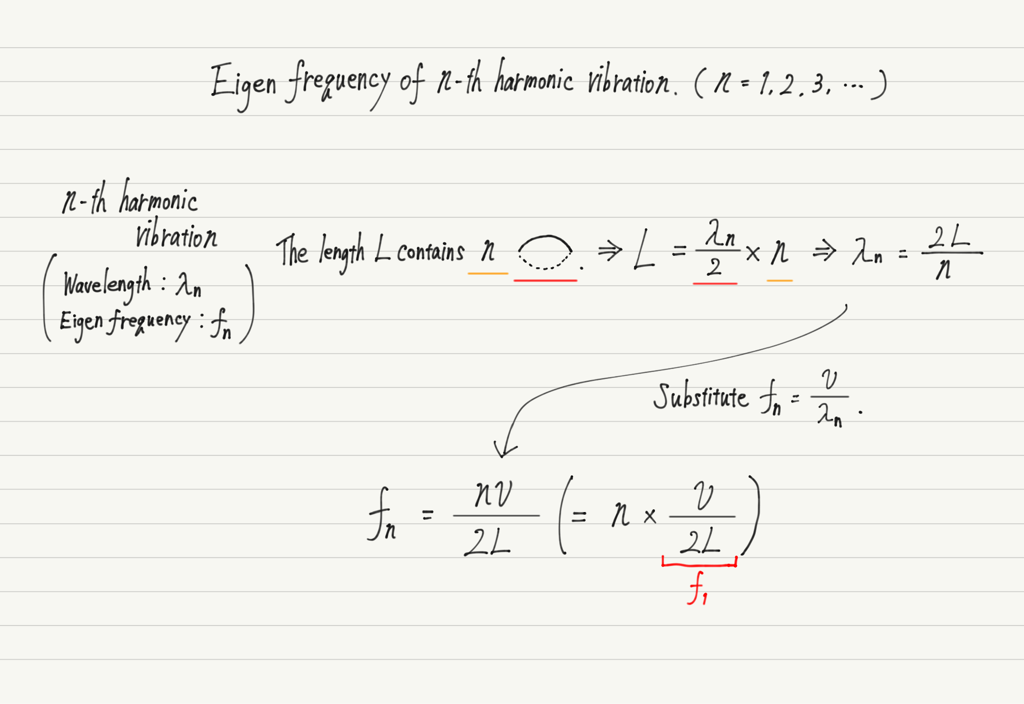 Eigen frequency of n-th harmonic vibration. (n = 1, 2, 3, ⋯)
n-th harmonic
vibration
(Wavelength : λn
Eigen frequency : fn)
The length L contains n . ⇒ L = λn/2 × n ⇒ λn = 2L/n
Substitute fn = v/λn .
fn = nv/2L (= n × v/2L)
f1